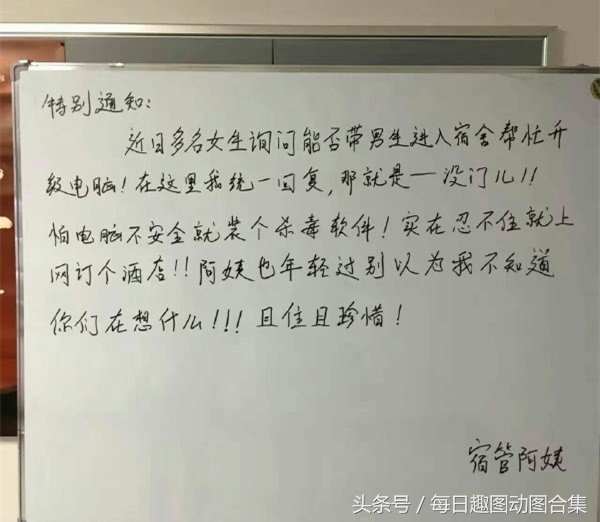 特别通知：
近日多名女生询问能否带男生进入宿舍帮忙升
级电脑！在这里我统一回复，那就是——没门儿！！
怕电脑不安全就装个杀毒软件！实在忍不住就上
网订个酒店！！阿姨也年轻过别以为我不知道
你们在想什么！！！且住且珍惜！
宿管阿姨
头条号／每日趣图动图合集